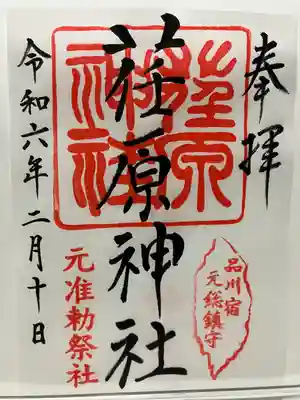 奉拝
品川宿
元総鎮守
荏原神社
荏原神社
元准勅祭社
令和六年二月十日